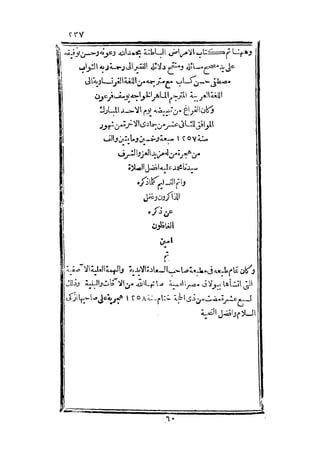 ٢٣٧
وهنا تم كتاب الامراض الباطنة بحمد الله وعونه وحسن توفيقه
على يد مصحح مسائله ومنقح دلائله الفقير الى رحمة ربه التواب
مصطفى حسن كساب مع مترجمه من اللغة الفرنساوية الى
اللغة العربية المترجم الماهر الخواجه يوسف فرعون
وكان الفراغ من تبييضه يوم الاحد المبارك
الموافق لثمانى عشر من جمادى الاخرة من شهور
سنة ١٢٥٧ سبعة وخمسين ومايتين والف
من هجرة من له مزيد العز والشرف
سيدنا محمد عليه افضل الصلاة
واتم التسليم كلما ذكره
الذاكرون وغفل
عن ذكره
الغافلون
امين
تم
وكان تمام طبعه فى مطبعة صاحب السعادة الابدية والهمة العلية الاصفية
التى انشأها ببولاق مصر المحمية صانها الله من الآفات والبلية وذلك
لسبع عشرة مضت من ذى الحجة ختام سنة ١٢٥٨ هجرية على صاحبها ازكى
السلام وافضل التحية
٦٠